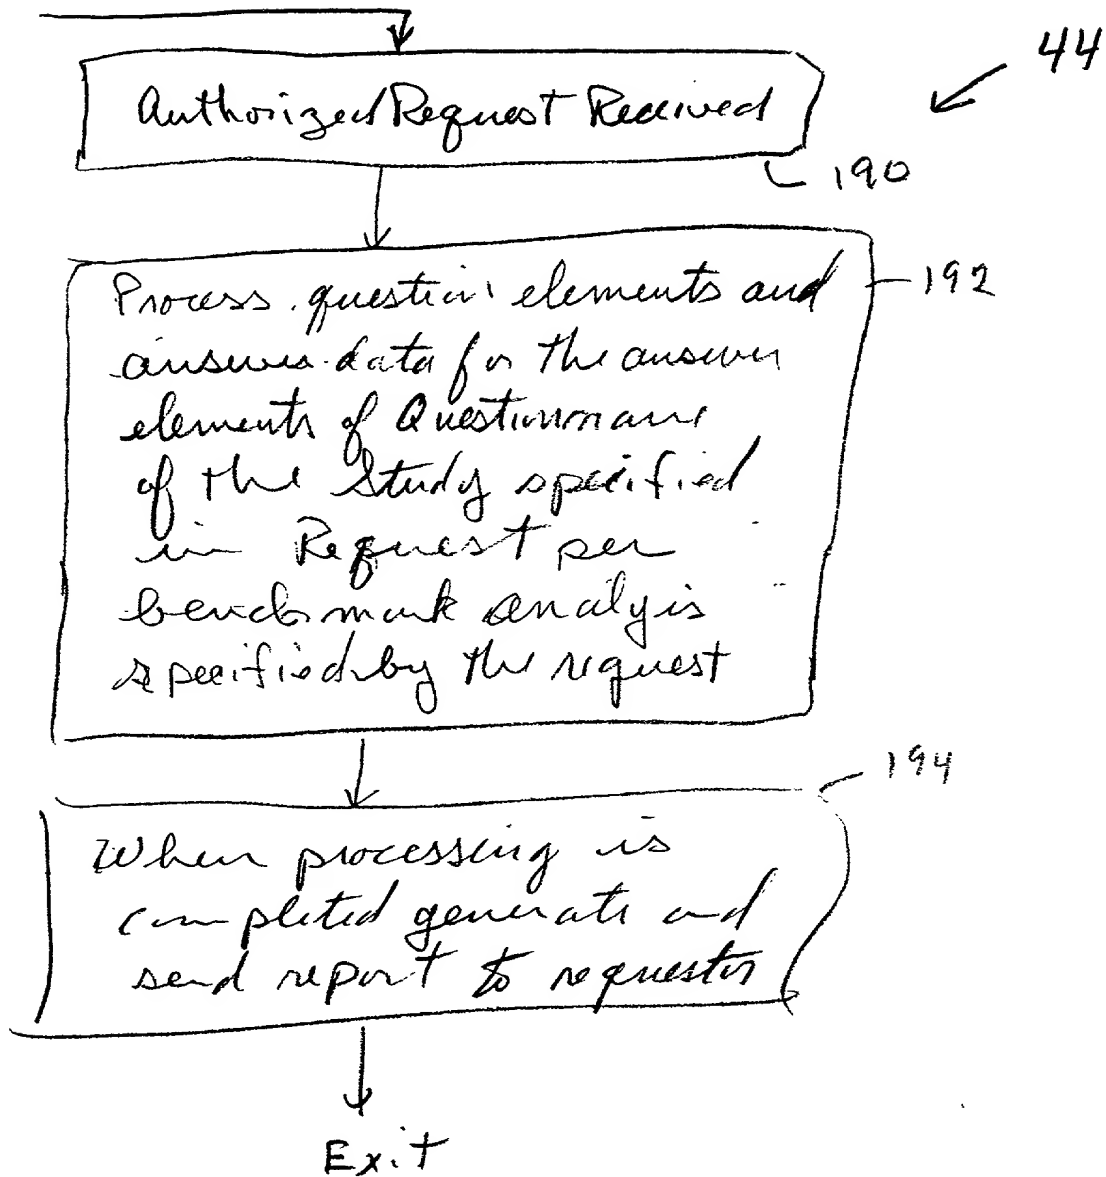 44
Authorized Request Received
190
192
Process question elements and
answer data for the answer
elements of Questionnaire
of the Study specified
in Request per
benchmark analysis
specified by the request
194
When processing is
completed generate and
send report to requestor
Exit